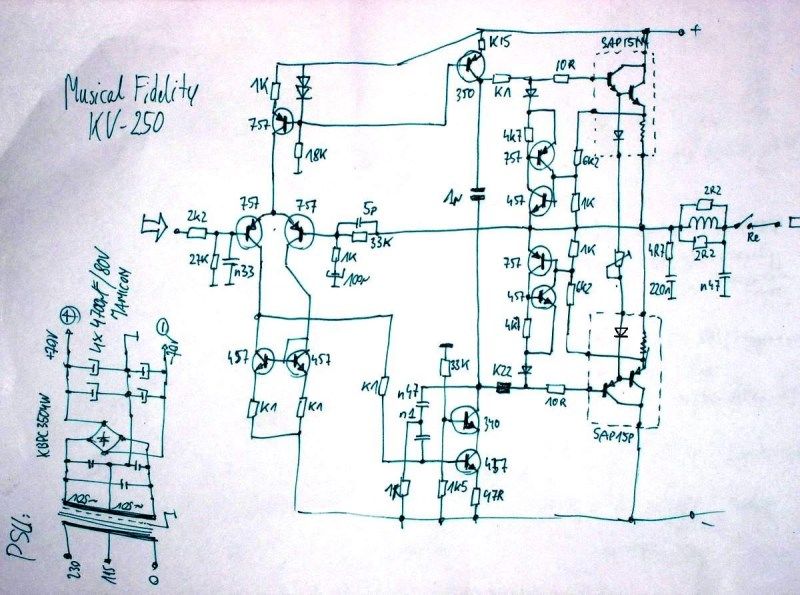 Musical Fidelity
KV-250
1K
757
18K
K15
350
K1
10R
SAP15N
+
4k7
757
6k2
1K
457
1n
2k2
757
757
5p
33K
27K
n33
1K
100n
2R2
2R2
Re
4R7
220n
n47
1K
757
457
6k2
4k7
33K
K22
10R
SAP15P
457
457
K1
K1
K1
n47
n1
340
457
1K
1k5
47R
-
+
+70V
4x 4700uF/80V
MAMICON
-
-70V
KBPC3504W
105~
105~
PSU:
230
115
0